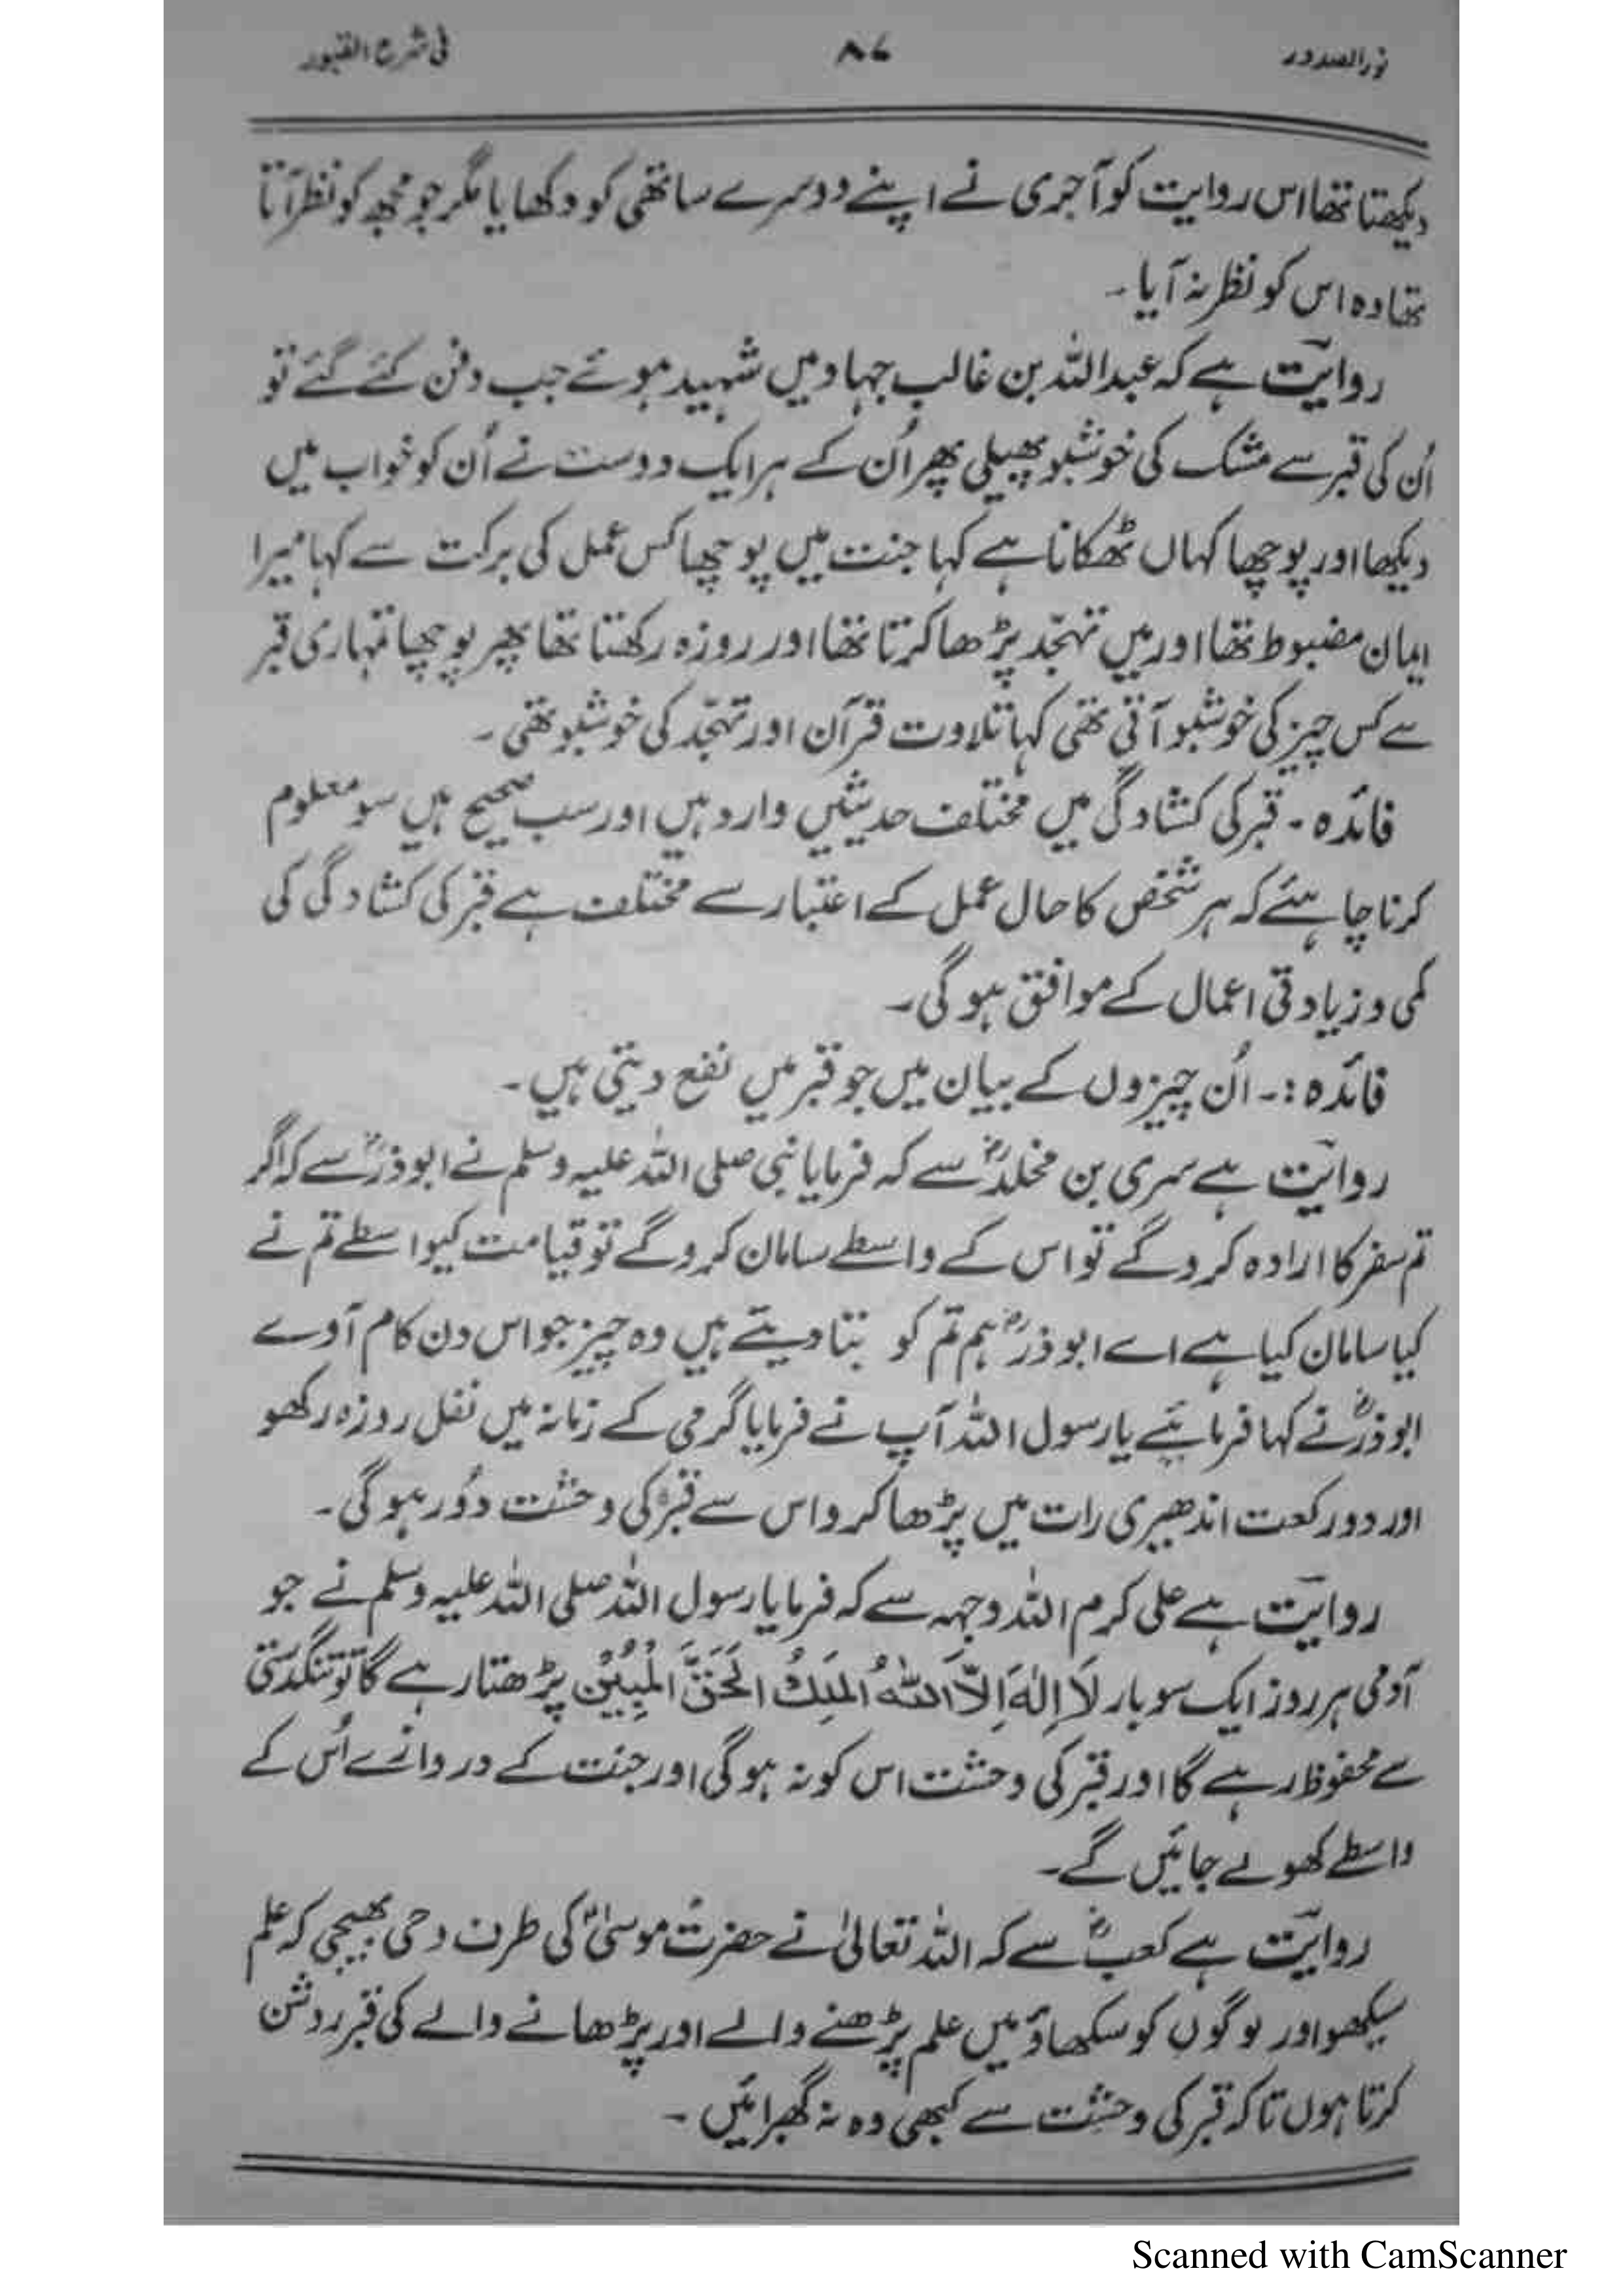 نورالصدور ۸۷ فی شرح القبور
دیکھتا تھا اس روایت کو آجری نے اپنے دوسرے ساتھی کو دکھایا مگر جو مجھ کو نظر آتا
تھا وہ اس کو نظر نہ آیا۔
روایت ہے کہ عبداللہ بن غالب جہاد میں شہید ہوئے جب دفن کئے گئے تو
اُن کی قبر سے مشک کی خوشبو پھیلی پھر اُن کے ہر ایک دوست نے اُن کو خواب میں
دیکھا اور پوچھا کہاں ٹھکانا ہے کہا جنت میں پوچھا کس عمل کی برکت سے کہا میرا
ایمان مضبوط تھا اور میں تہجّد پڑھا کرتا تھا اور روزہ رکھتا تھا پھر پوچھا تمہاری قبر
سے کس چیز کی خوشبو آتی تھی کہا تلاوت قرآن اور تہجّد کی خوشبو تھی۔
فائدہ - قبر کی کشادگی میں مختلف حدیثیں وارد ہیں اور سب صحیح ہیں سو معلوم
کرنا چاہئے کہ ہر شخص کا حال عمل کے اعتبار سے مختلف ہے قبر کی کشادگی کی
کمی و زیادتی اعمال کے موافق ہوگی۔
فائدہ :۔ اُن چیزوں کے بیان میں جو قبر میں نفع دیتی ہیں۔
روایت ہے سری بن مخلدؓ سے کہ فرمایا نبی صلی اللہ علیہ وسلم نے ابوذرؓ سے کہ اگر
تم سفر کا ارادہ کروگے تو اس کے واسطے سامان کروگے تو قیامت کیواسطے تم نے
کیا سامان کیا ہے اے ابوذرؓ ہم تم کو بتا دیتے ہیں وہ چیز جو اس دن کام آوے
ابوذرؓ نے کہا فرمائیے یارسول اللہ آپ نے فرمایا گرمی کے زمانہ میں نفل روزہ رکھو
اور دو رکعت اندھیری رات میں پڑھا کرو اس سے قبر کی وحشت دُور ہوگی۔
روایت ہے علی کرم اللہ وجہہ سے کہ فرمایا رسول اللہ صلی اللہ علیہ وسلم نے جو
آدمی ہر روز ایک سو بار لَا اِلٰہَ اِلَّا اللّٰہُ الْمَلِکُ الْحَقُّ الْمُبِیْنُ پڑھتا رہے گا تو تنگدستی
سے محفوظ رہے گا اور قبر کی وحشت اس کو نہ ہوگی اور جنت کے دروازے اُس کے
واسطے کھولے جائیں گے۔
روایت ہے کعبؓ سے کہ اللہ تعالیٰ نے حضرت موسیٰؑ کی طرف وحی بھیجی کہ علم
سیکھو اور لوگوں کو سکھاؤ میں علم پڑھنے والے اور پڑھانے والے کی قبر روشن
کرتا ہوں تاکہ قبر کی وحشت سے کبھی وہ نہ گھبرائیں۔
Scanned with CamScanner